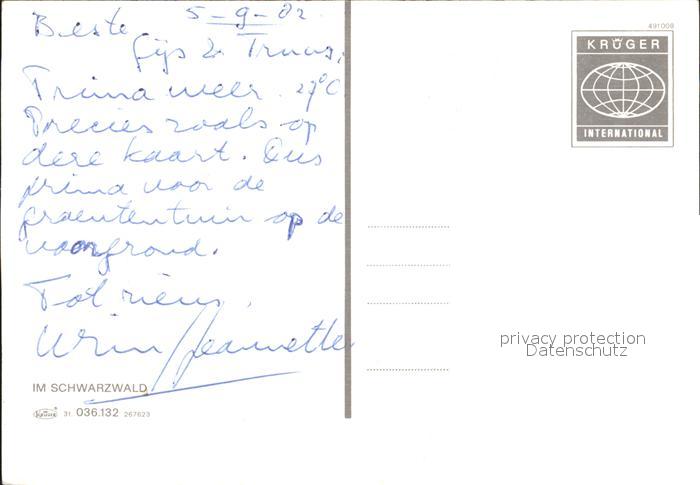 5-9-02
Beste
Gijs & Truus,
Prima weer. 27°C
Precies zoals op
deze kaart. Dus
prima voor de
groentetuin op de
voorgrond.
Tot ziens,
Wim / Jeannette
IM SCHWARZWALD
KRÜGER 31. 036.132 267623
491009
KRÜGER
INTERNATIONAL
privacy protection
Datenschutz